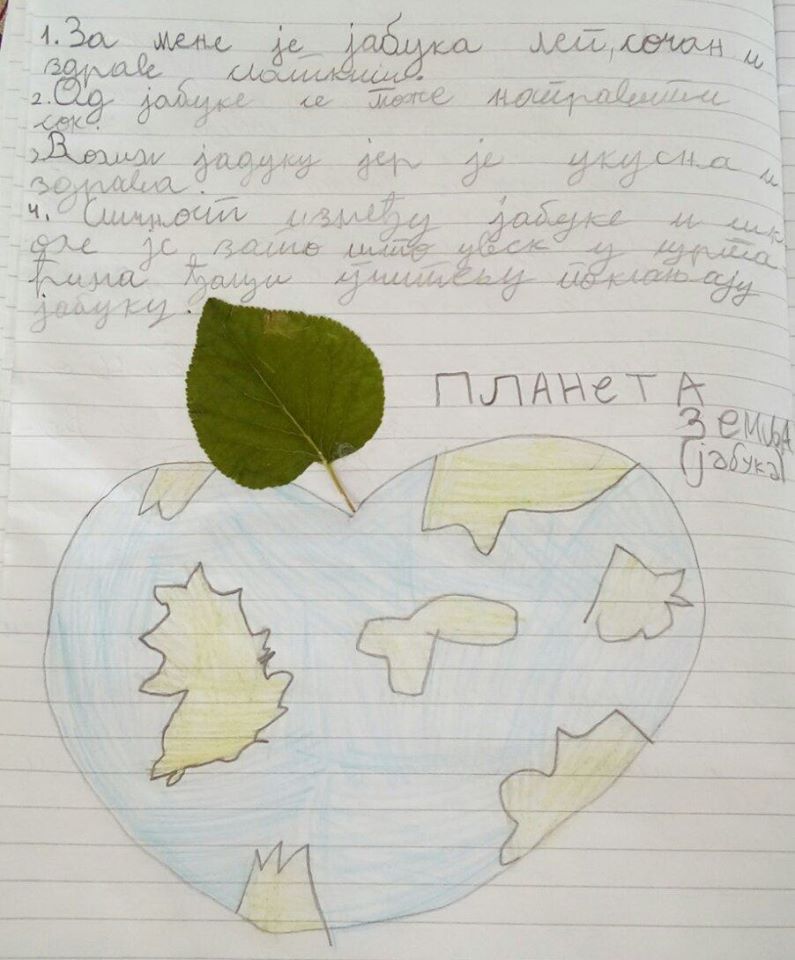 1. За мене је јабука леп, сочан и
здрав слаткиш.
2. Од јабуке се може направити
сок.
3. Волим јабуку јер је укусна и
здрава.
4. Сличност између јабуке и шк
оле је зато што увек у црта
ћима ђаци учитељу поклањају
јабуку.
ПЛАНЕТА
ЗЕМЉА
(јабука)